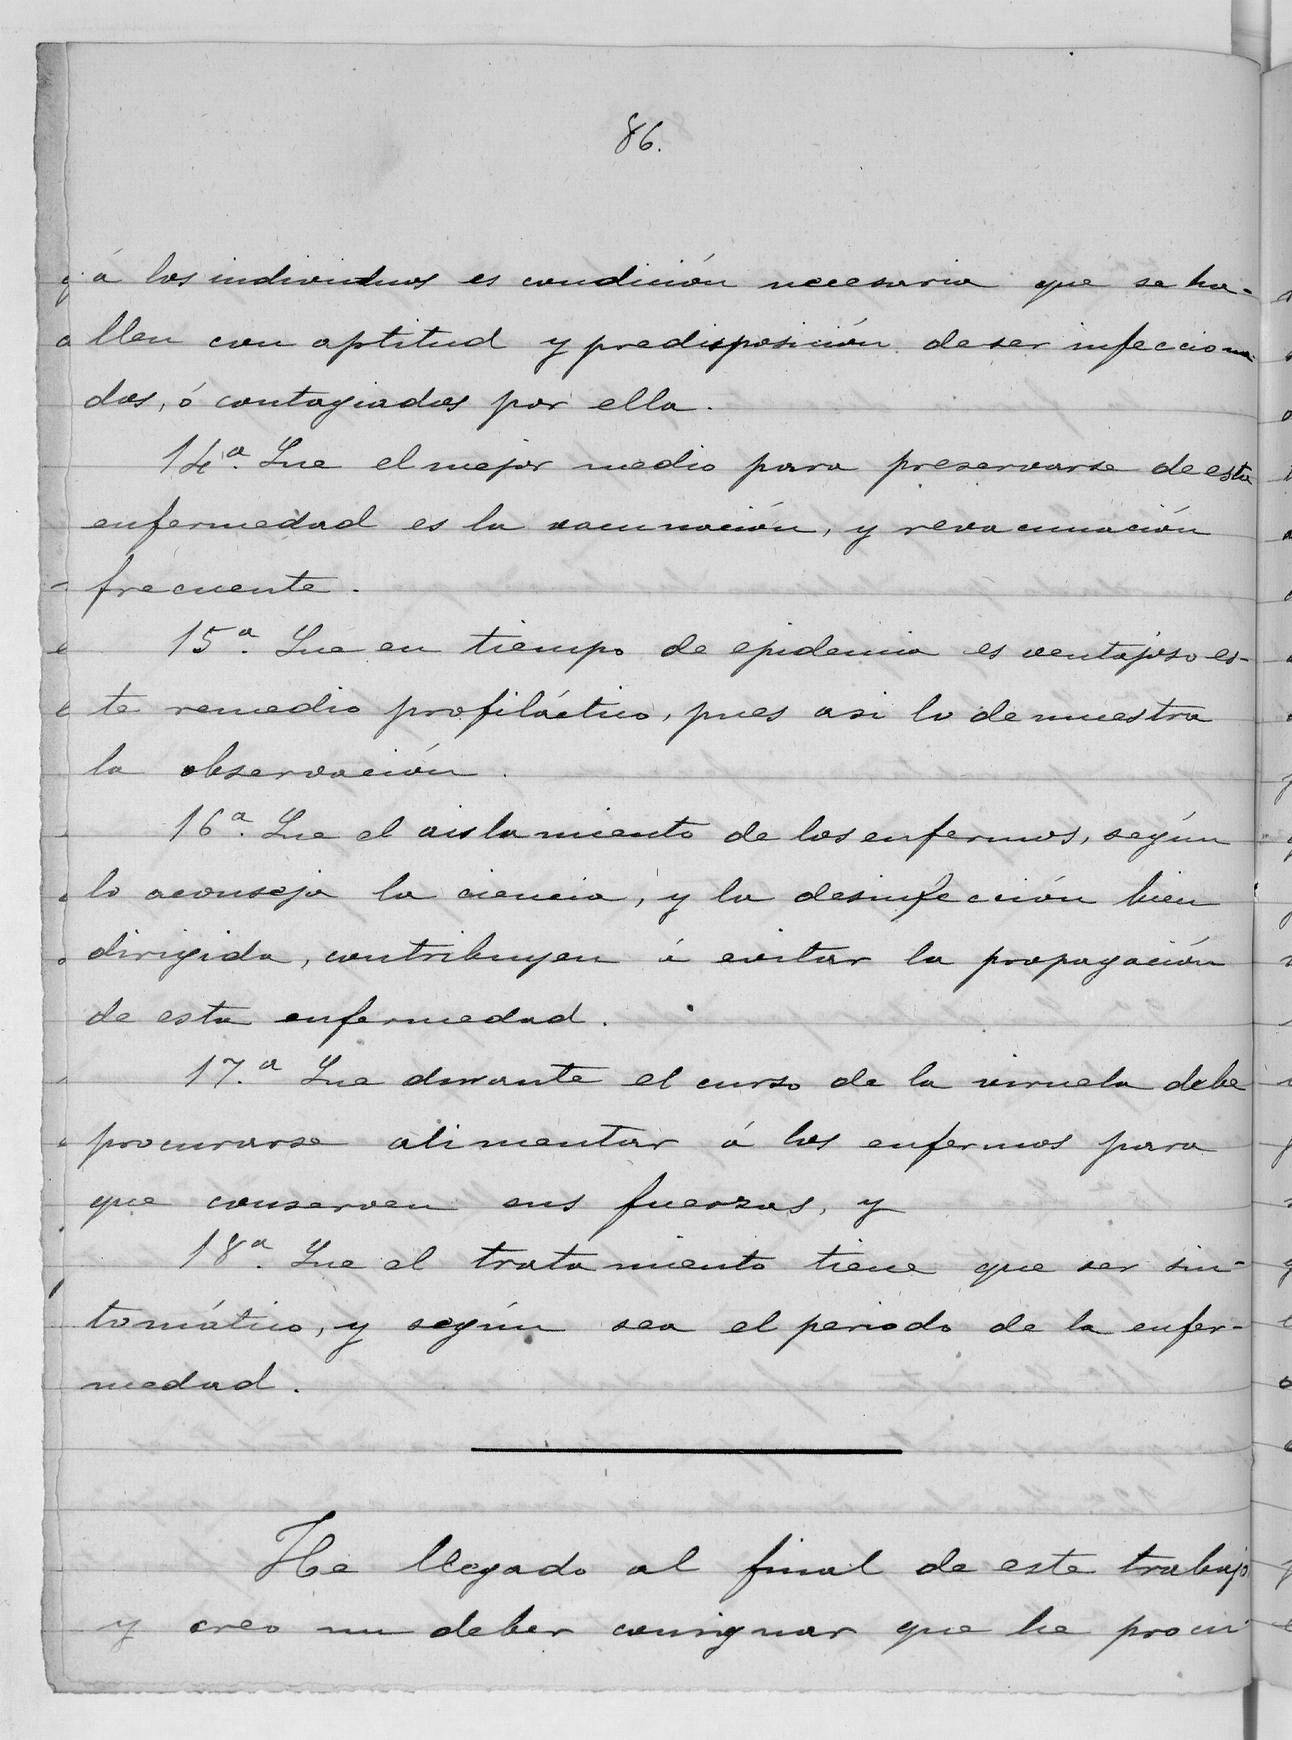 86.
á los individuos es condición necesaria que se ha-
llen con aptitud y predisposición de ser infecciona
dos, ó contagiados por ella.
14ª. Que el mejor medio para preservarse de esta
enfermedad es la vacunación, y revacunación
frecuente.
15ª. Que en tiempo de epidemia es ventajoso es-
te remedio profiláctico, pues asi lo demuestra
la observación.
16ª. Que el aislamiento de los enfermos, según
lo aconseja la ciencia, y la desinfección bien
dirigida, contribuyen á evitar la propagación
de esta enfermedad.
17.ª Que durante el curso de la viruela debe
procurarse alimentar á los enfermos para
que conserven sus fuerzas, y
18ª. Que el tratamiento tiene que ser sin-
tomático, y según sea el periodo de la enfer-
medad.
He llegado al final de este trabajo
y creo un deber consignar que he procu